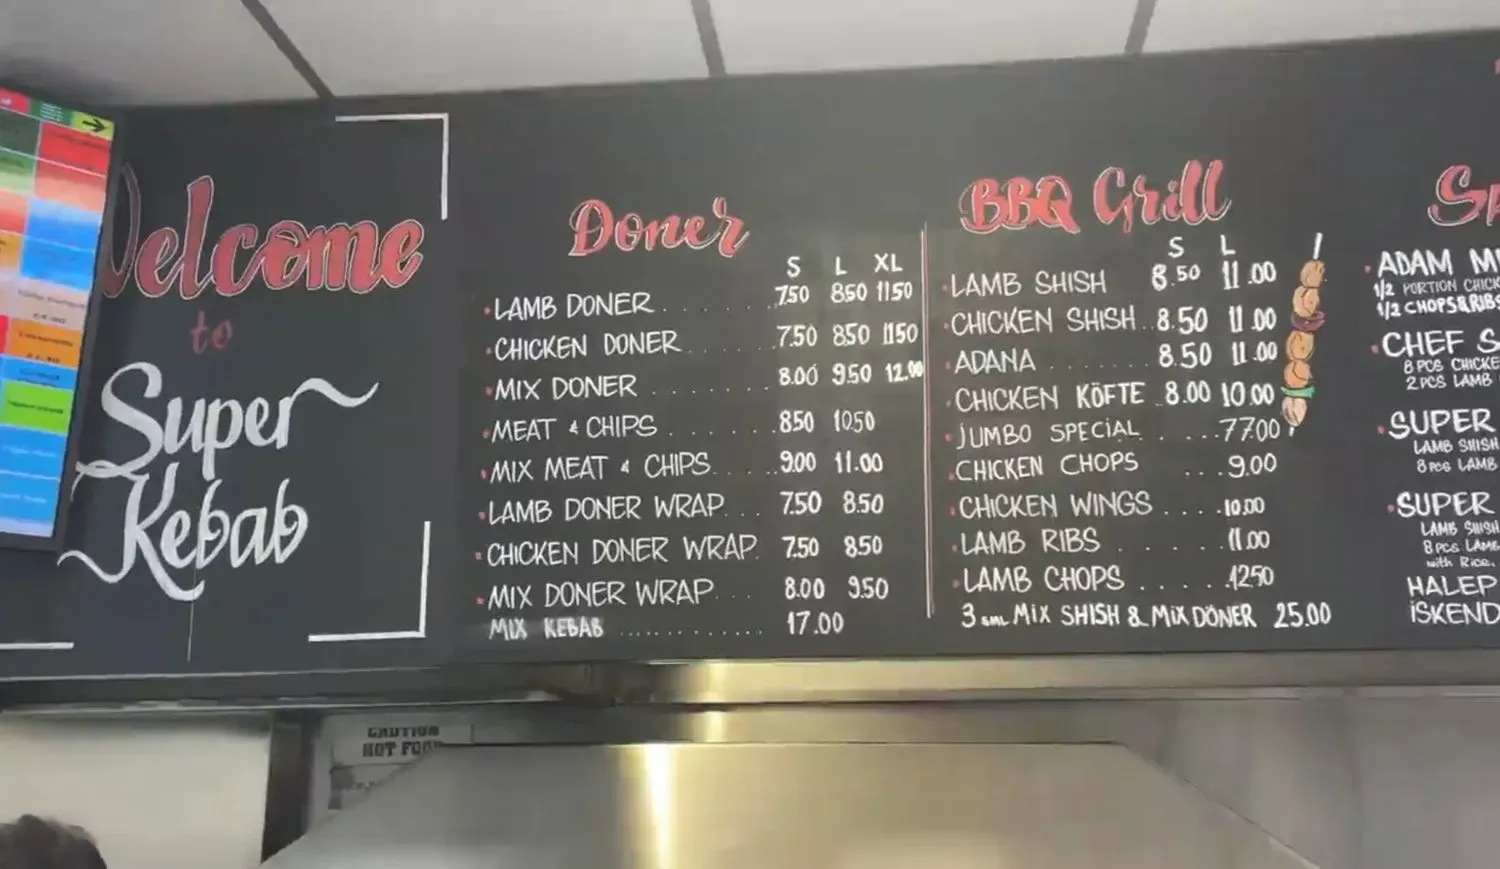 Welcome
to
Super
Kebab
Doner
S L XL
LAMB DONER 7.50 8.50 11.50
CHICKEN DONER 7.50 8.50 11.50
MIX DONER 8.00 9.50 12.00
MEAT & CHIPS 8.50 10.50
MIX MEAT & CHIPS 9.00 11.00
LAMB DONER WRAP 7.50 8.50
CHICKEN DONER WRAP 7.50 8.50
MIX DONER WRAP 8.00 9.50
MIX KEBAB 17.00
BBQ Grill
S L
LAMB SHISH 8.50 11.00
CHICKEN SHISH 8.50 11.00
ADANA 8.50 11.00
CHICKEN KÖFTE 8.00 10.00
JUMBO SPECİAL 77.00
CHICKEN CHOPS 9.00
CHICKEN WINGS 10.00
LAMB RIBS 11.00
LAMB CHOPS 12.50
3 SML MİX SHİSH & MİX DÖNER 25.00
ADAM
1/2 PORTION
1/2 CHOPS & RIBS
CHEF
8 PCS
2 PCS LAMB
SUPER
LAMB SHISH
8 PCS LAMB
SUPER
LAMB SHISH
8 PCS LAMB
with Rice,
CAUTION
HOT FOOD